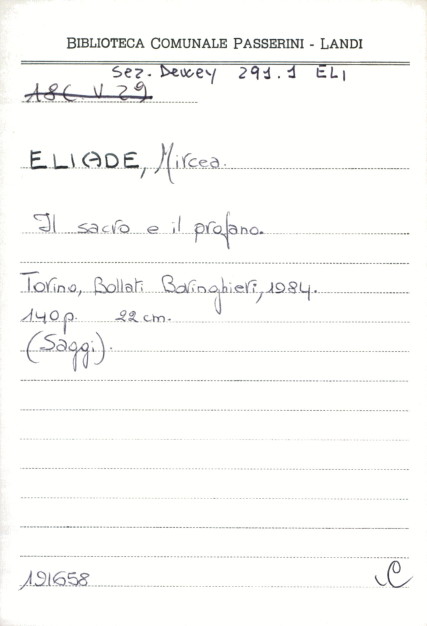 BIBLIOTECA COMUNALE PASSERINI - LANDI
Sez. Dewey 291.1 ELI
18C. V 29
ELIADE, Mircea.
Il sacro e il profano.
Torino, Bollati Boringhieri, 1984.
140 p. 22 cm.
(Saggi).
191658
C